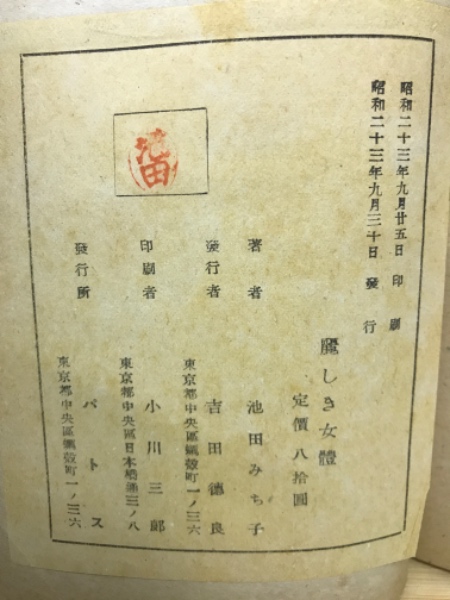 昭和二十三年九月廿五日 印刷
昭和二十三年九月三十日 發行
麗しき女體
定價八拾圓
著者 池田みち子
發行者 吉田德良
東京都中央區蠣殼町一ノ三六
印刷者 小川三郎
東京都中央區日本橋通三ノ八
發行所 パトス
東京都中央區蠣殼町一ノ三六
池田